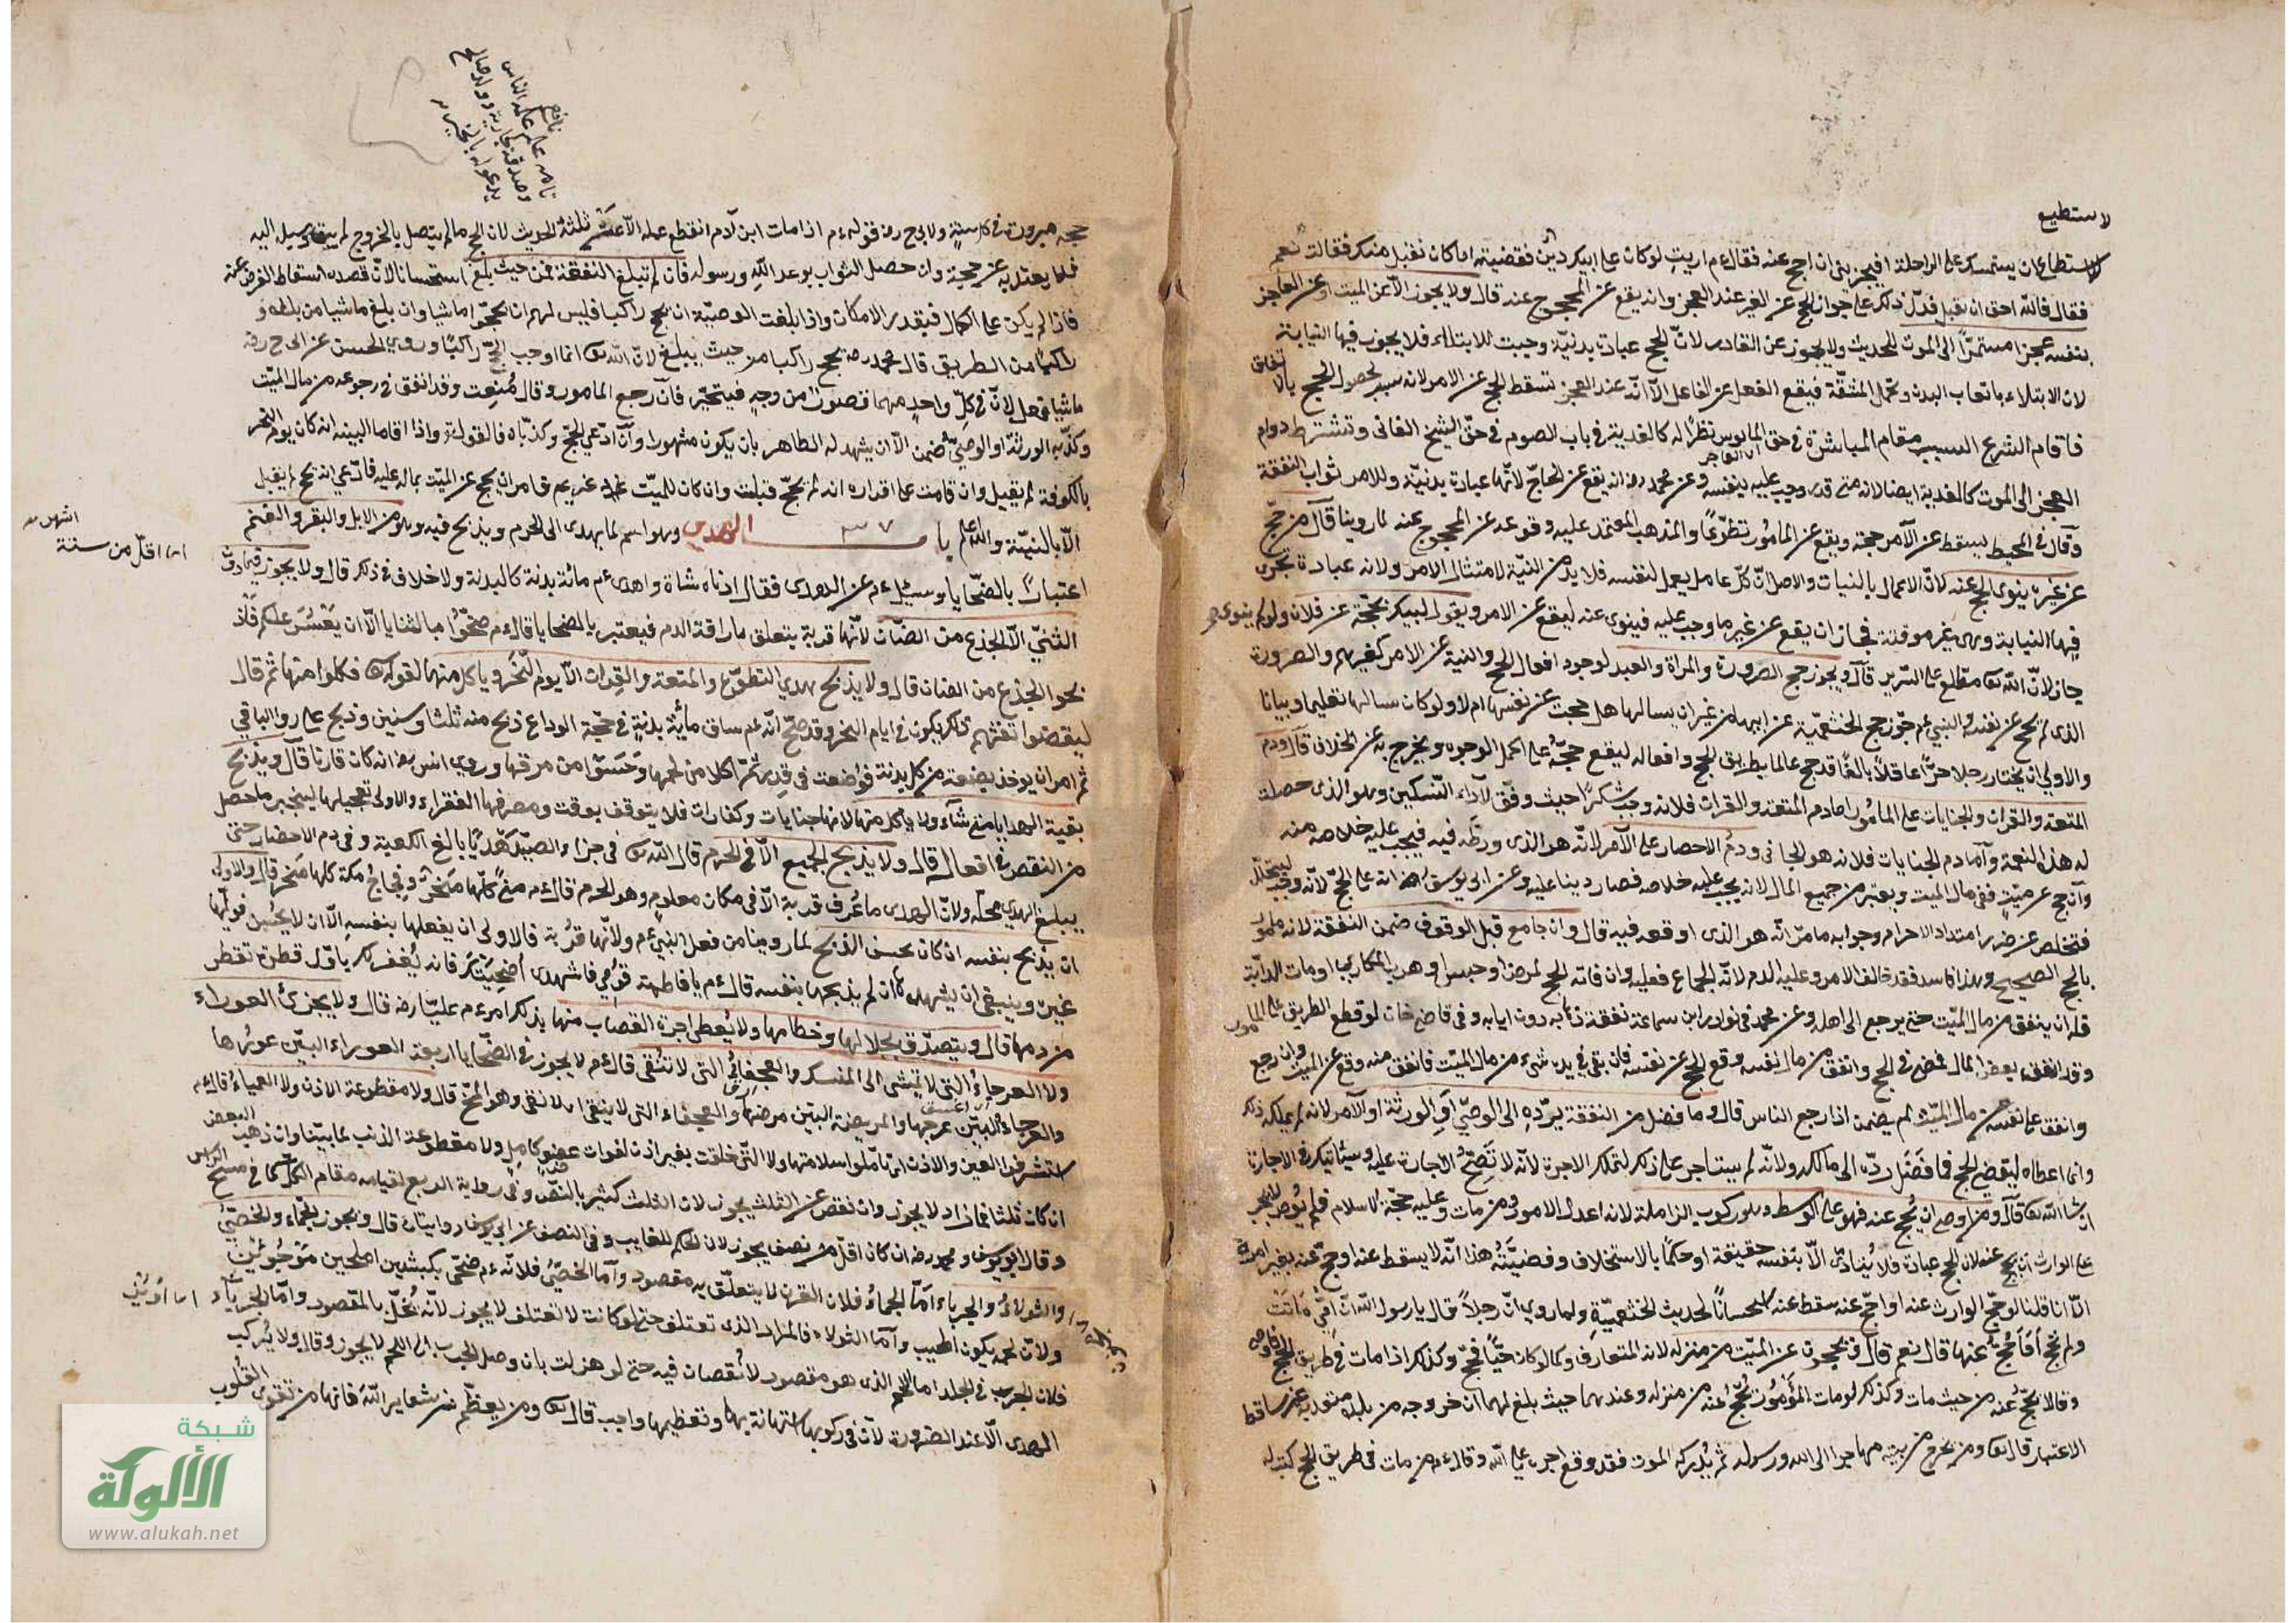 لا يستطيع
لا يستطاع ان يستمسك على الراحلة افيجزيني ان احج عنه فقال ءم اريت لو كان على ابيك دين فقضيته اما كان تقبل منك فقالت نعم
فقال فالله احق ان يقبل فدل ذلك على جواز الحج عن الغير عند العجز وانه يقع عن المحجوج عنه قال ولا يجوز الا عن الميت او عن العاجز
بنفسه عجزا مستمرا الى الموت للحديث ولا يجوز عن القادر لان الحج عبادة بدنية وجبت للابتلاء فلا يجوز فيها النيابة
لان الابتلاء باتعاب البدن وتحمل المشقة فيقع الفعل عن الفاعل الا انه عند العجز تسقط الحج عن الامر لانه سبب لحصول الحج بالانفاق
فاقام الشرع السبب مقام المباشرة في حق المايوس نظرا له كالفدية في باب الصوم في حق الشيخ الفاني وتشترط دوام
العجز الى الموت كالفدية ايضا لانه متى قدر وجب عليه بنفسه وعن محمد رح انه يقع عن الحاج لانها عبادة بدنية وللامر ثواب النفقة
وقال في المحيط يسقط عن الآمر حجته ويقع عن المامور تطوعا والمذهب المعتمد عليه وقوعه عن المحجوج عنه لما روينا قال من حج
عن غيره ينوي الحج عنه لان الاعمال بالنيات والاصل ان كل عامل يعمل لنفسه فلا بد من النية لامتثال الامر ولانه عبادة تجرى
فيها النيابة وهي غير موقتة فجاز ان يقع عن غير ما وجب عليه فينوى عنه ليقع عن الامر ويقول لبيك بحجة عن فلان ولو لم ينوي
جاز لان الله تعا مطلع على السرير قال ويجوز حج الصرورة والمراة والعبد لوجود افعال الحج والنية عن الامر كغيرهم والصرورة
الذي لم يحج عن نفسه والنبي ءم جوز حج الخثعمية عن ابيها من غير ان يسالها هل حجت عن نفسها ام لا ولو كان سالها تعليما وبيانا
والاولى ان يختار رجلا حرا عاقلا بالغا قد حج عالما بطريق الحج وافعاله ليقع حجه على اكمل الوجوه ويخرج به عن الخلاف قال ودم
المتعة والقران والجنايات على المامور اما دم المتعة والقران فلانه وجب شكرا حيث وفق لآداء النسكين وهو الذي حصلت
له هذه النعمة وآما دم الجنايات فلانه هو الجاني ودم الاحصار على الآمر لانه هو الذي ورطه فيه فيجب عليه خلاصه منه
وان حج عن ميت ففي مال الميت ويعتبر من جميع المال لانه يجب عليه خلاصه فصار دينا عليه وعن ابي يوسف انه على الحاج لانه وجب ليتحلل
فتخلص عن ضرر امتداد الاحرام وجوابه ما مر انه هو الذي اوقعه فيه قال وان جامع قبل الوقوف ضمن النفقة لانه مامور
بالحج الصحيح وهذا فاسد فقد خالف الامر وعليه الدم لانه الجماع فعله وان فاته الحج لمرض او حبس او هرب المكاري او مات الدابة
فله ان ينفق من مال الميت حتى يرجع الى اهله وعن محمد في نوادر ابن سماعة نفقة ذهابه دون ايابه وفي قاضي خان لو قطع الطريق على المامور
وقد انفق بعض المال فمضى في الحج وانفق من مال نفسه وقع الحج عن نفسه فان بقى في يده شيء من مال الميت فانفق منه وقع عن الميت وان رجع
وانفق على نفسه من مال الميت لم يضمن اذا رجع الناس قال وما فضل من النفقة يرده الى الوصي او الورثة او الآمر لانه لم يملكه ذلك
وانما اعطاه ليقضي الحج فما فضل رده الى مالكه ولانه لم يستاجر على ذلك لتملك الاجرة لانه لا تصح الاجارة عليه وسياتيك في الاجارة
ان شا الله تعا قال ومن اوصى ان يحج عنه فهو على الوسط وهو ركوب الزاملة لانه اعدل الامور ومن مات وعليه حجة الاسلام فلم يوص لم يجب
على الوارث ان يحج عنه لان الحج عبادة فلا يتادى الا بنفسه حقيقة او حكما بالاستخلاف وقضيته هذا انه لا يسقط عنه لو حج عنه بغير امره
الا انا قلنا لو حج الوارث عنه او احج عنه سقط عنه استحسانا لحديث الخثعمية ولما روي ان رجلا قال يا رسول الله ان امي ماتت
ولم تحج افاحج عنها قال نعم قال ويحجون عن الميت من منزله لانه المتعارف وكما لو كان حيا فحج وكذلك اذا مات في طريق الحج فاوصى
وقالا يحج عنه من حيث مات وكذلك لو مات المامور يحج عنه من منزله وعندهما حيث بلغ لهما ان خروجه من بلده معتد به غير ساقط
الاعتبار قال تعا ومن يخرج من بيته مهاجرا الى الله ورسوله ثم يدركه الموت فقد وقع اجره على الله وقال ءم من مات في طريق الحج كتب له
حجة مبرورة في كل سنة ولابي ح رح قوله ءم اذا مات ابن آدم انقطع عمله الا عن ثلثة الحديث لان الحج ما لم يتصل بالخروج لم يبق وسيلة اليه
فلا يعتد به عن حجة وان حصل الثواب بوعد الله ورسوله فان لم تبلغ النفقة فمن حيث بلغ استحسانا لان قصده اسقاط الفرض عنه
فاذا لم يكن على الكمال فبقدر الامكان واذا بلغت الوصية ان يحج راكبا فليس لهم ان يحجوا ماشيا وان بلغ ماشيا من بلده و
راكبا من الطريق قال محمد رح يحج راكبا من حيث يبلغ لان الله تعا انما اوجب الحج راكبا وروي الحسن عن ابي ح رح
لان في كل واحد منهما من وجه فيتخير فان رجع المامور وقال مُنعت وقد انفق في رجوعه من مال الميت
وكذبه الورثة او الوصي ضمن الا ان يشهد له الظاهر بان يكون مشهورا وان ادعى الحج وكذباه فالقول له واذا اقاما البينة انه كان يوم النحر
بالكوفة لم يقبل وان قامت على اقراره انه لم يحج قبلت وان كان للميت على غريم فامر ان يحج عن الميت بما له عليه فادعى انه حج لم يقبل
الا بالبينة والله اعلم باب ٣٧ الهدي وهو اسم لما يهدى الى الحرم ويذبح فيه وهو من الابل والبقر والغنم
اعتبارا بالضحايا وسئل ءم عن الهدي فقال ادناه شاة واهدى ءم مائة بدنة كالبدنة ولا خلاف في ذلك قال ولا يجوز فيما دون
الثني الا الجذع من الضان لانها قربة يتعلق باراقة الدم فيعتبر بالضحايا قال ءم ضحوا بالثنايا الا ان يعسر عليكم فاذ
بحوا الجذع من الضان قال ولا يذبح هدي التطوع والمتعة والقران الا يوم النحر وياكل منها لقوله تعا فكلوا منها ثم قال
ليقضوا تفثهم وذلك يكون في ايام النحر وقد صح انه ءم ساق مائة بدنة في حجة الوداع ذبح منه ثلثا وستين وذبح علي رض الباقي
ثم امر ان يوخذ بضعة من كل بدنة فوضعت في قدر ثم اكلا من لحمها وحسوا من مرقها وروي انس رض انه كان قارنا قال ويذبح
بقية الهدايا متى شآء ولا ياكل منها لانها جنايات وكفارات فلا يتوقف بوقت ومصرفها الفقراء والاولى تعجيلها لينجبر ما حصل
من النقص في افعاله قال ولا يذبح الجميع الا في الحرم قال الله تعا في جزاء الصيد هديا بالغ الكعبة وفي دم الاحصار حتى
يبلغ الهدي محله ولان الهدي ما عُرف قربة الا في مكان معلوم وهو الحرم قال ءم منى كلها منحر وفجاج مكة كلها منحر قال والاولى
ان يذبح بنفسه ان كان يحسن الذبح لما روينا من فعل النبي ءم ولانها قربة فالاولى ان يفعلها بنفسه الا ان لا يحسن فوليها
غيره وينبغي ان يشهدها ان لم يذبحها بنفسه قال ءم يا فاطمة قومي فاشهدي اضحيتك فانه يُغفر لك باول قطرة تقطر
من دمها قال ويتصدق بجلالها وخطامها ولا يُعطى اجرة القصاب منها بذلك امر ءم عليا رض قال ولا يجزئ العوراء
ولا العرجاء التي لا تمشي الى المنسك والعجفاء التي لا تنقى قال ءم لا يجوز في الضحايا اربعة العوراء البين عورها
والعرجاء البين عرجها والمريضة البين مرضها والعجفاء التي لا ينقى اى لا نقى وهو المخ قال ولا مقطوعة الاذن ولا العمياء قال ءم
استشرفوا العين والاذن اى تاملوا سلامتها ولا التي خلقت بغير اذن لفوات عضو كامل ولا مقطوعة الذنب لما بينا وان ذهب البعض
ان كان ثلثا فما زاد لا يجوز وان نقص عن الثلث يجوز لان الثلث كثير بالنص وفي رواية الربع لقيامه مقام الكل كما في مسح الراس
وقال ابو يوسف ومحمد رح ان كان اقل من نصف يجوز لان الحكم للغالب وفي النصف عن ابي يوسف روايتان قال ويجوز الجماء والخصي
والثولاء والجرباء اما الجماء فلان القرن لا يتعلق به مقصود وآما الخصي فلانه ءم ضحى بكبشين املحين موجوئين
ولان لحمه يكون اطيب وآما الثولاء فالمراد الذي تعتلف حتى لو كانت لا تعتلف لا يجوز لانه يخل بالمقصود وآما الجرباء
فلان الجرب في الجلد اما اللحم الذي هو مقصود لا نقصان فيه حتى لو هزلت بان وصل الجرب الى اللحم لا يجوز وقال ولا يُركب
الهدي الا عند الضرورة لان في ركوبها استهانة بها وتعظيمها واجب قال تعا ومن يعظم شعاير الله فانها من تقوى القلوب
اى اقل من سنة
شبكة
الألوكة
www.alukah.net